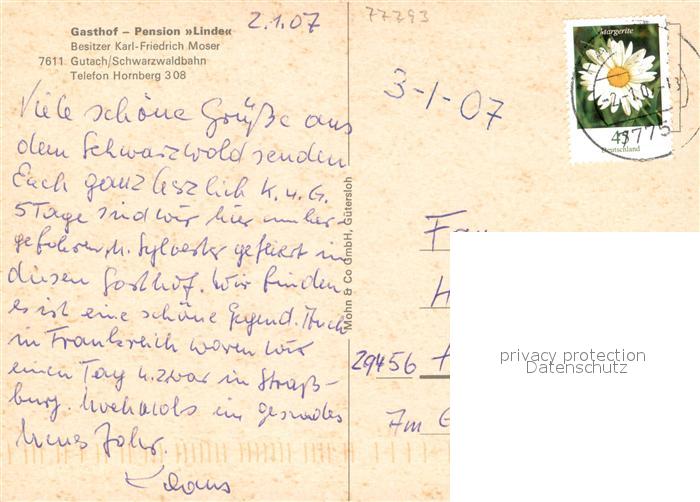 Gasthof – Pension »Linde«
Besitzer Karl-Friedrich Moser
7611 Gutach/Schwarzwaldbahn
Telefon Hornberg 308
2.1.07
77293
Viele schöne Grüße aus
dem Schwarzwald senden
Euch ganz herzlich K. u. G.
5 Tage sind wir hier umher
gefahren, u. Sylvester gefeiert in
diesen Gasthof. Wir finden
es ist eine schöne Gegend. Auch
in Frankreich waren wir
einen Tag u. zwar in Straß-
burg. Nochmals ein gesundes
Neues Jahr.
Klaus
Mohn & Co GmbH, Gütersloh
3-1-07
Margerite
Deutschland
F
H
29456
Im
privacy protection
Datenschutz